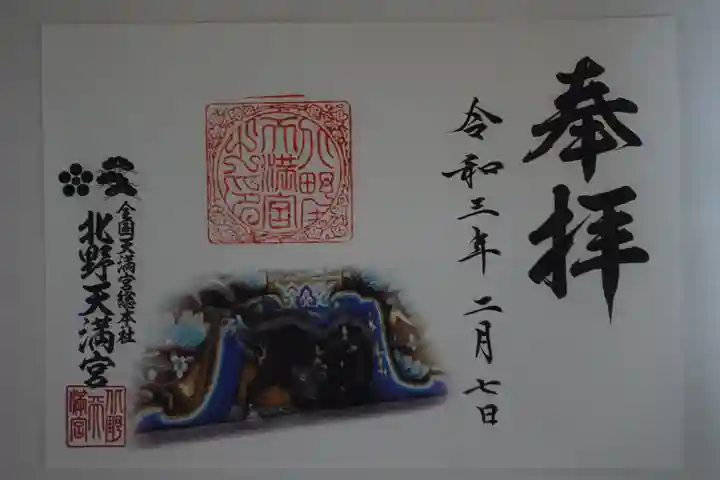 奉拝
令和三年二月七日
北野天満宮之印
全国天満宮総本社
北野天満宮
北野天満宮